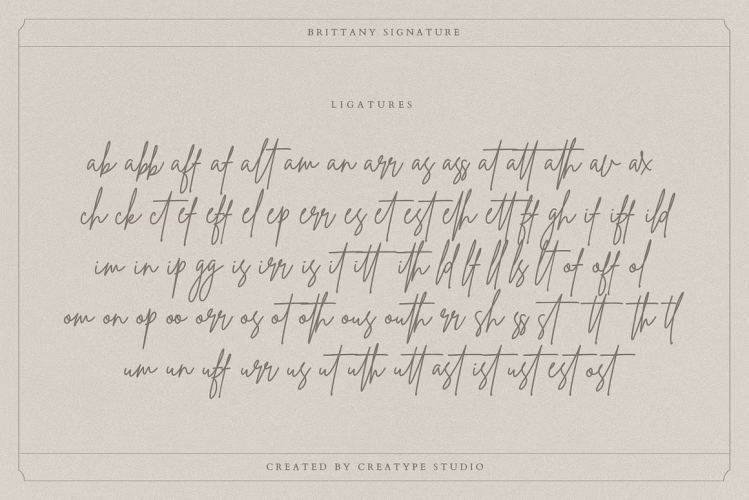 BRITTANY SIGNATURE
LIGATURES
ab abb aff af alt am an arr as ass at att ath av ax
ch ck ct ef eff el ep err es et est eth ett ff gh if iff ild
im in ip gg is irr is it itt ith ld lt ll ls lt of off ol
om on op oo orr os ot oth ous outh rr sh ss st tt th tl
um un uff urr us ut uth utt ast ist ust est ost
CREATED BY CREATYPE STUDIO